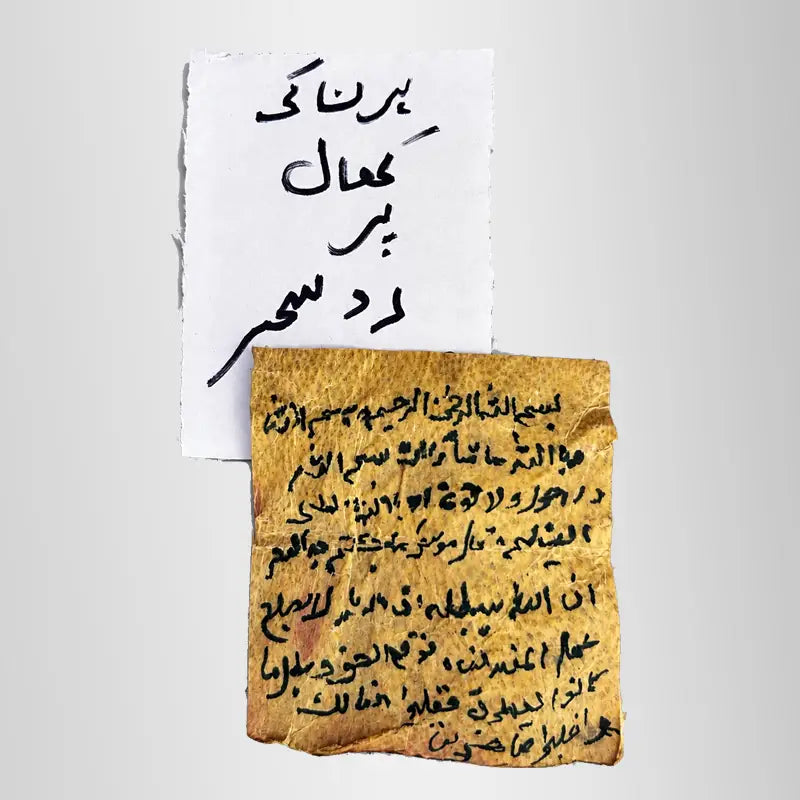 ہرنا کی
کھال
پر
رد سحر
بسم الله الرحمن الرحيم بسم الله
الله ما شاء الله بسم الله
ولا حول ولا قوة الا بالله العلى
العظيم قال موسى ما جئتم به السحر
ان الله سيبطله ان الله لا يصلح
عمل المفسدين فوقع الحق وبطل ما
كانوا يعملون فغلبوا هنالك
وانقلبوا صاغرين